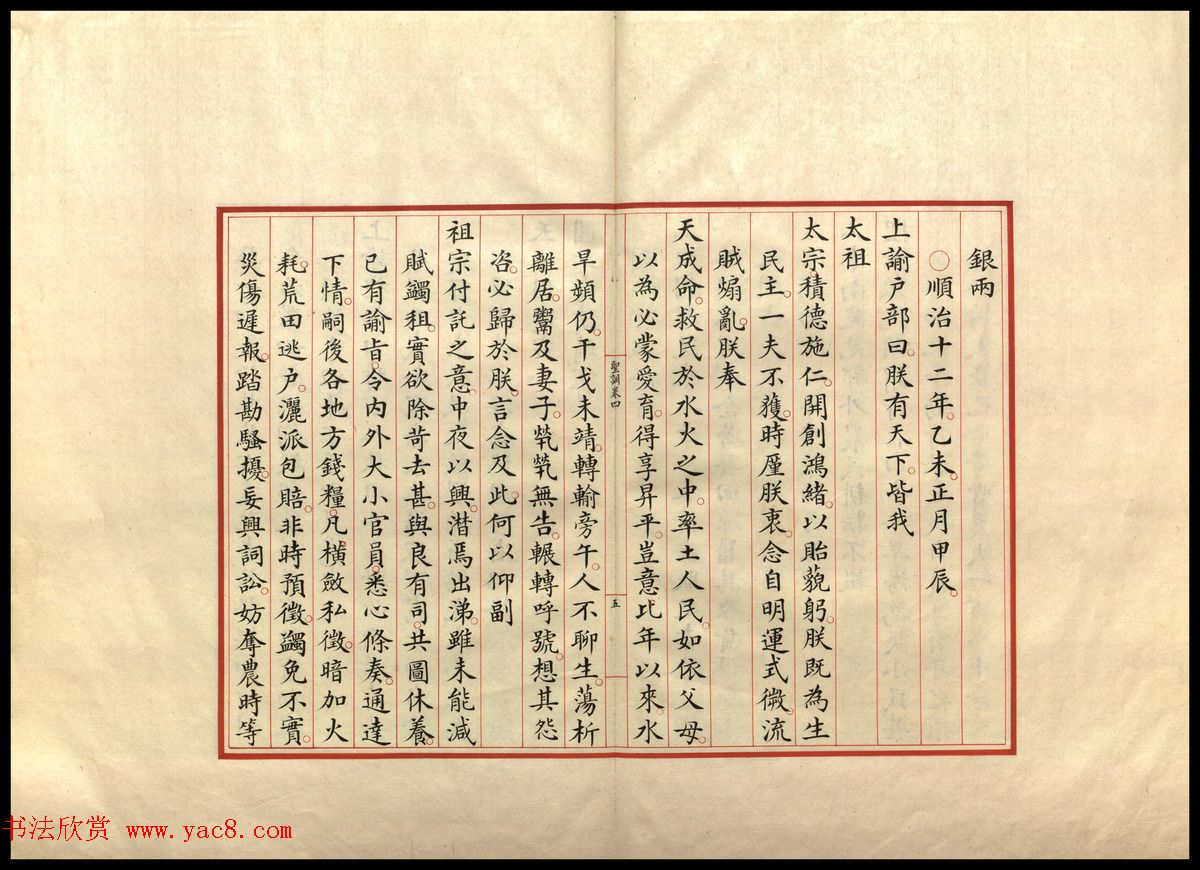 銀兩
○順治十二年乙未正月甲辰
上諭户部曰朕有天下皆我
太祖
太宗積德施仁開創鴻緒以貽藐躬朕既為生
民主一夫不獲時厪朕衷念自明運式微流
賊煽亂朕奉
天成命救民於水火之中率土人民如依父母
以為必蒙愛育得享昇平豈意比年以來水
聖訓卷四
五
旱頻仍干戈未靖轉輸旁午人不聊生蕩析
離居鬻及妻子煢煢無告輾轉呼號想其怨
咨必歸於朕言念及此何以仰副
祖宗付託之意中夜以興潸焉出涕雖未能減
賦蠲租實欲除苛去甚與良有司共圖休養
已有諭旨令內外大小官員悉心條奏通達
下情嗣後各地方錢糧凡橫斂私徵暗加火
耗荒田逃户灑派包賠非時預徵蠲免不實
災傷遲報踏勘騷擾妄興詞訟妨奪農時等
书法欣赏 www.yac8.com